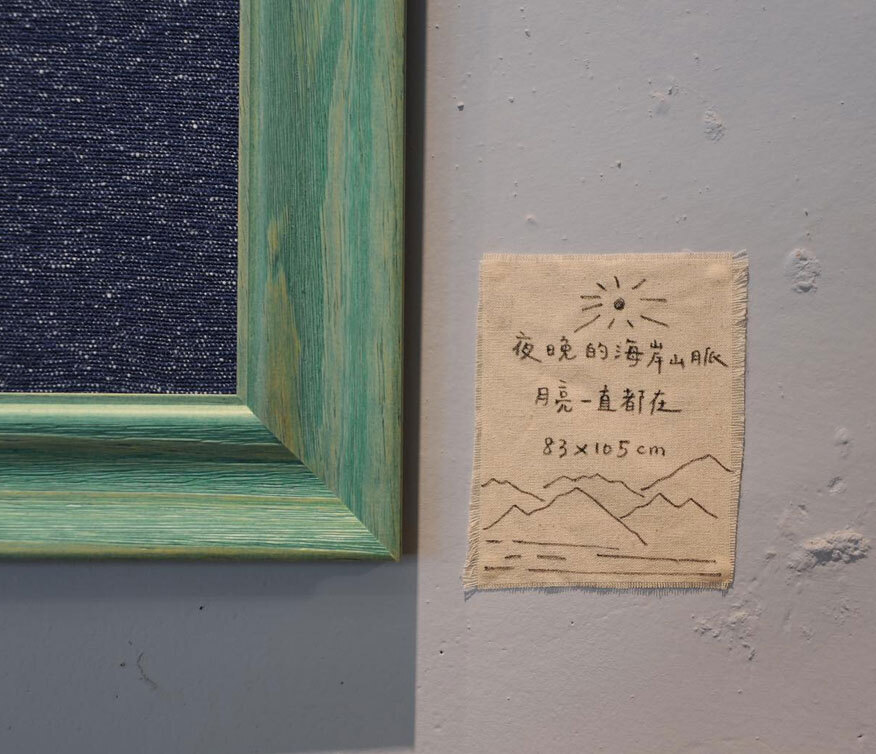 夜晚的海岸山脈
月亮一直都在
83×105cm